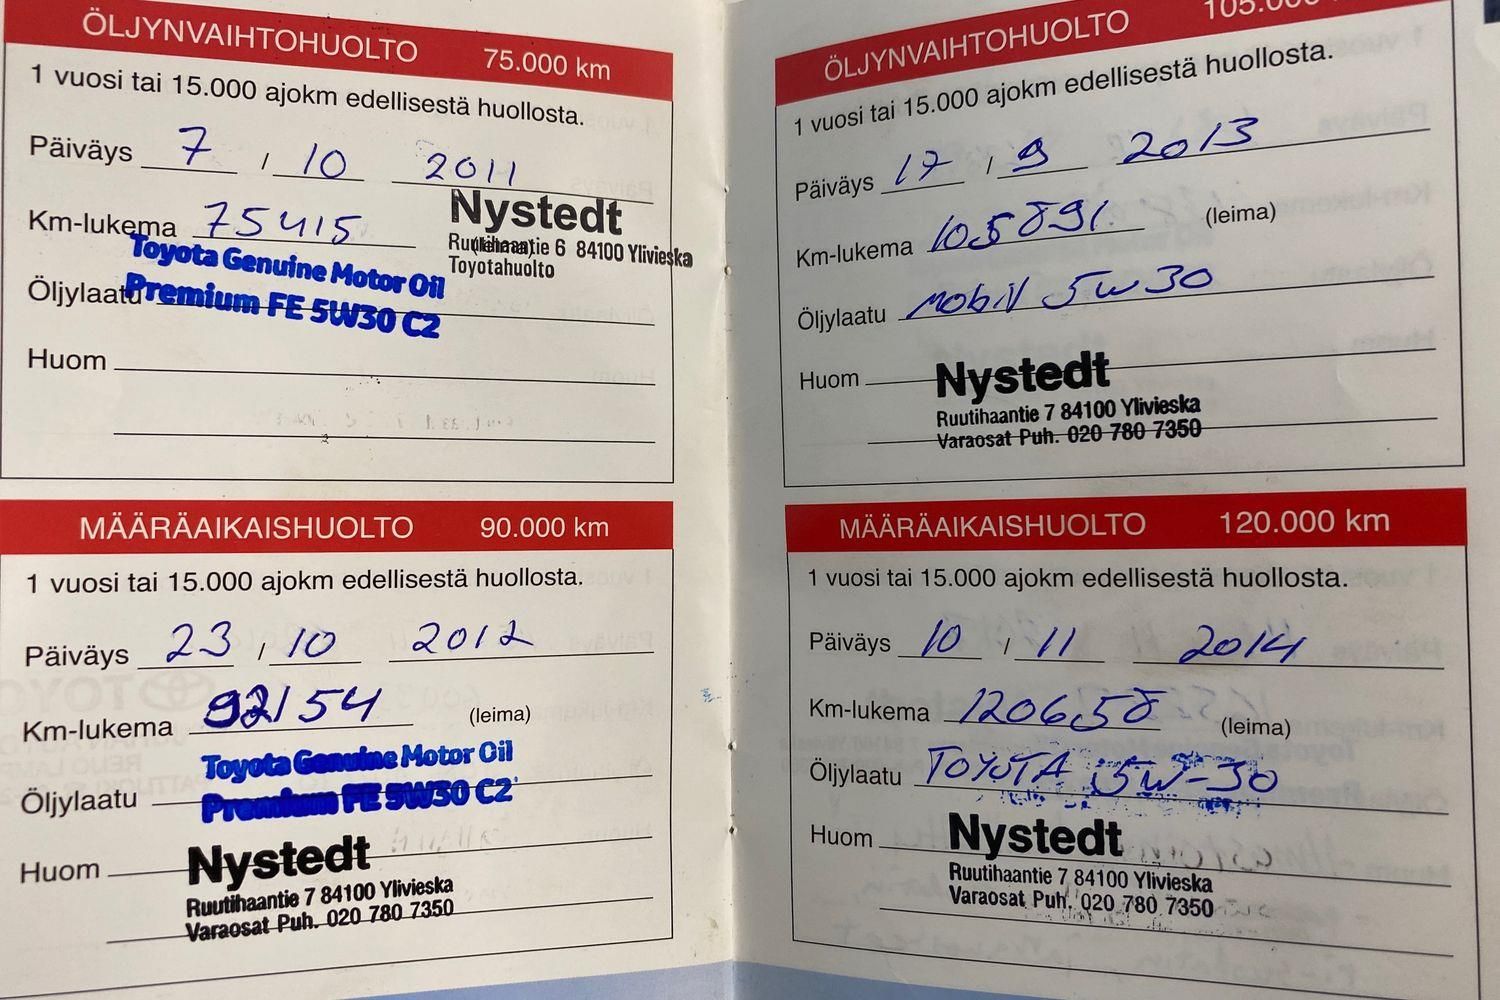 ÖLJYNVAIHTOHUOLTO 75.000 km
1 vuosi tai 15.000 ajokm edellisestä huollosta.
Päiväys 7 / 10 2011
Km-lukema 75415
Nystedt
Ruutihaantie 6 84100 Ylivieska
Toyotahuolto
Toyota Genuine Motor Oil
Öljylaatu Premium FE 5W30 C2
Huom
MÄÄRÄAIKAISHUOLTO 90.000 km
1 vuosi tai 15.000 ajokm edellisestä huollosta.
Päiväys 23 / 10 2012
Km-lukema 92154 (leima)
Toyota Genuine Motor Oil
Öljylaatu Premium FE 5W30 C2
Huom Nystedt
Ruutihaantie 7 84100 Ylivieska
Varaosat Puh. 020 780 7350
ÖLJYNVAIHTOHUOLTO 105.000
1 vuosi tai 15.000 ajokm edellisestä huollosta.
Päiväys 17 / 9 2013
Km-lukema 105891. (leima)
Öljylaatu Mobil 5W30
Huom Nystedt
Ruutihaantie 7 84100 Ylivieska
Varaosat Puh. 020 780 7350
MÄÄRÄAIKAISHUOLTO 120.000 km
1 vuosi tai 15.000 ajokm edellisestä huollosta.
Päiväys 10 / 11 2014
Km-lukema 120658 (leima)
Öljylaatu TOYOTA 5W-30
Huom Nystedt
Ruutihaantie 7 84100 Ylivieska
Varaosat Puh. 020 780 7350